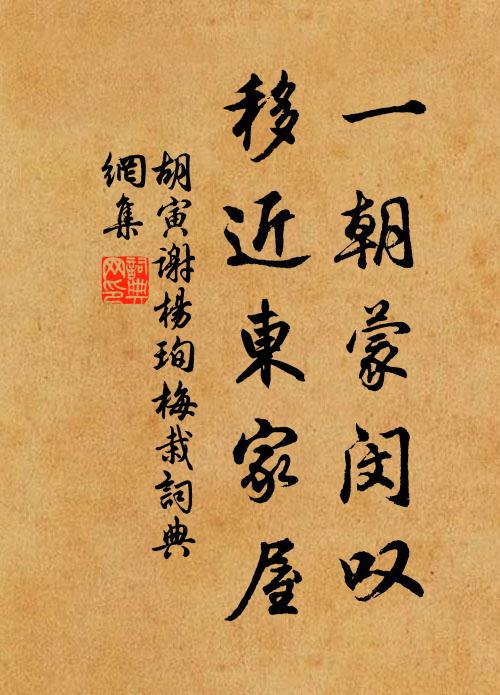 一朝蒙闵叹
移近東家屋
胡寅谢楊珣梅栽詞典
網集
詞典網印